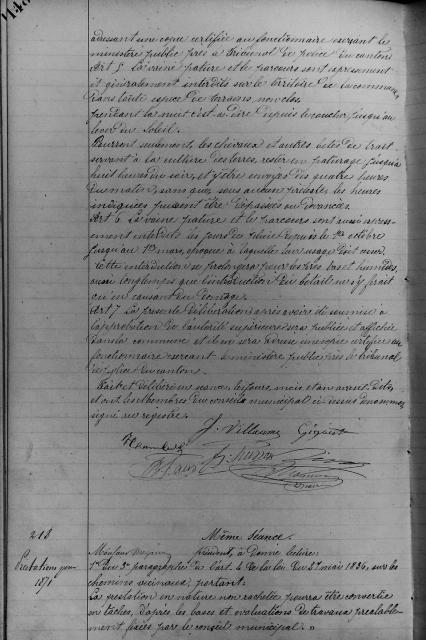 adressant une copie certifiée au fonctionnaire exerçant le
ministère public près le tribunal de police du canton.
Art 5 La vaine pature et le parcours sont expressement
et généralement interdits sur le territoire de la commune,
dans toute espece de terrains, non clos,
pendant la nuit c'est-à-dire depuis le coucher, jusqu'au
lever du soleil.
Pourront seulement, les chevaux et autres bêtes de trait
servant à la culture des terres, rester en paturage jusqu'à
huit heures du soir, et y être envoyés dès quatre heures
du matin, sans que, sous aucun prétexte les heures
indiquées puissent être dépassées ou devancées.
Art 6 La vaine pature et le parcours sont aussi expres-
sement interdits les jours de pluie depuis le 1er octobre
jusqu'au 1er mars, époque à laquelle leur usage doit cesser.
Cette interdiction se prolongera pour les prés bas et humides,
aussi longtemps que l'introduction du bétail n'y ferait
en causant du dommage.
Art 7 La presente délibération après avoir été soumise à
l'approbation de l'autorité supérieure sera publiée et affichée
dans la commune et il en sera adressé une copie certifiée au
fonctionnaire exerçant le ministère public près le tribunal
de police du canton.
Fait et délibéré en séance, les jour, mois et an avant dits,
et ont les membres du conseil municipal ci dessus dénommés,
signé au registre.
J. Villaume
218
Même séance.
Prestations pour
1871
Monsieur président, a donné lecture
1er du 3e paragraphe de l'art. 4 de la loi du 21 mai 1836, sur les
chemins vicinaux, portant:
La prestation en nature non rachetée pourra être convertie
en tâches, d'après les bases et evaluations de travaux prealable-
ment fixées par le conseil municipal. »